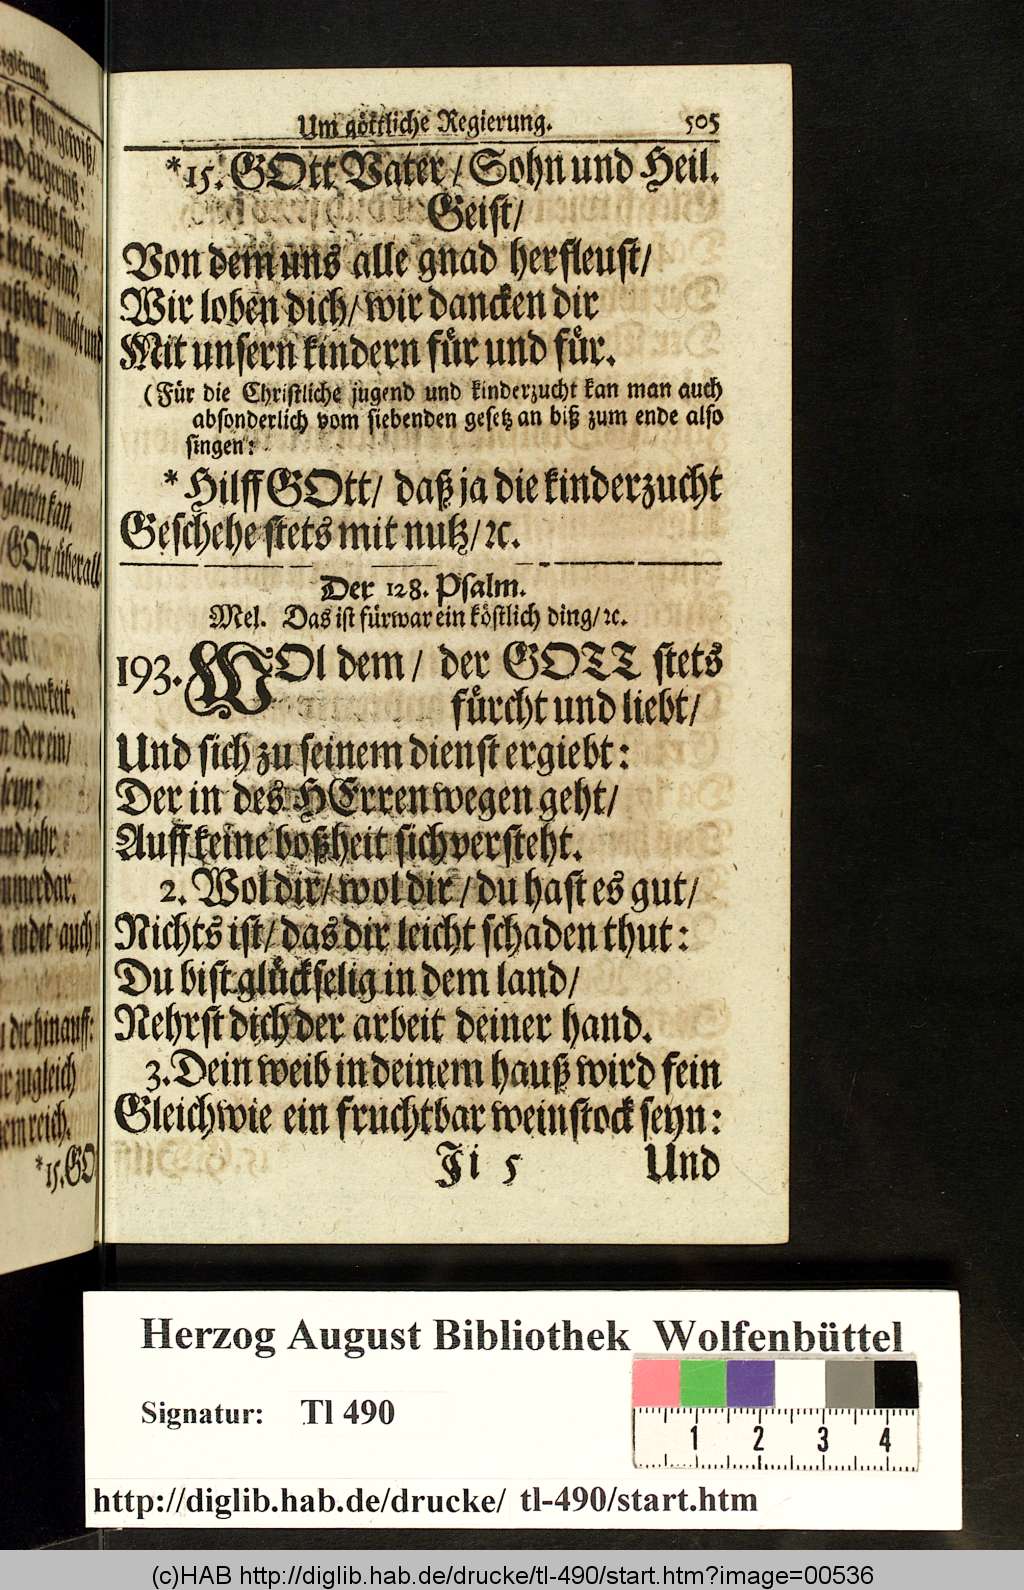 Um göttliche Regierung. 505
*15. GOtt Vater / Sohn und Heil.
Geist/
Von dem uns alle gnad herfleust/
Wir loben dich/ wir dancken dir
Mit unsern kindern für und für.
(Für die Christliche jugend und kinderzucht kan man auch
absonderlich vom siebenden gesetz an biß zum ende also
singen:
* Hilff GOtt/ daß ja die kinderzucht
Geschehe stets mit nutz/ ꝛc.
Der 128. Psalm.
Mel. Das ist fürwar ein köstlich ding/ ꝛc.
193. WOl dem / der GOTT stets
fürcht und liebt/
Und sich zu seinem dienst ergiebt:
Der in des HErren wegen geht/
Auff keine boßheit sich versteht.
2. Wol dir/ wol dir / du hast es gut/
Nichts ist/ das dir leicht schaden thut:
Du bist glückselig in dem land/
Nehrst dich der arbeit deiner hand.
3. Dein weib in deinem hauß wird fein
Gleichwie ein fruchtbar weinstock seyn:
Ji 5 Und
sie seyn gewiß/
macht und
rechter bahn/
gleiten kan.
/ GOtt / überall
mal/
erbarkeit.
seyn:
immerdar.
endet auch
hinauff:
zugleich
*15. GO
Herzog August Bibliothek Wolfenbüttel
Signatur: Tl 490
1 2 3 4
http://diglib.hab.de/drucke/ tl-490/start.htm
(c)HAB http://diglib.hab.de/drucke/tl-490/start.htm?image=00536